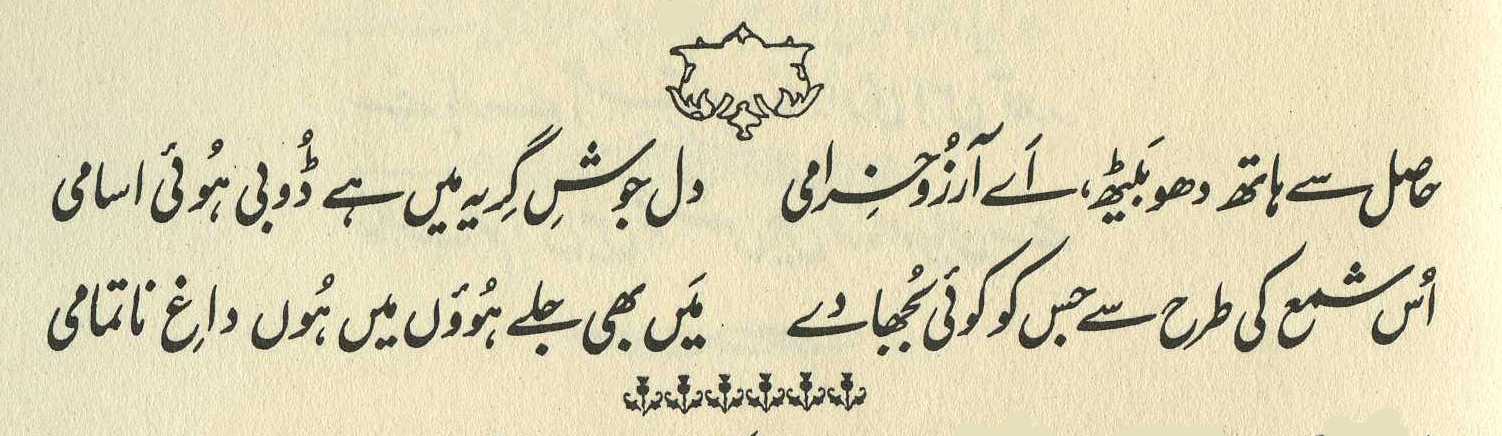 حاصل سے ہاتھ دھو بَیٹھ، اَے آرزُو خِرامی دل جوشِ گِریہ میں ہے ڈُوبی ہُوئی اسامی
اُس شمع کی طرح سے جس کو کوئی بُجھا دے مَیں بھی جلے ہُوؤں میں ہُوں داغِ ناتمامی